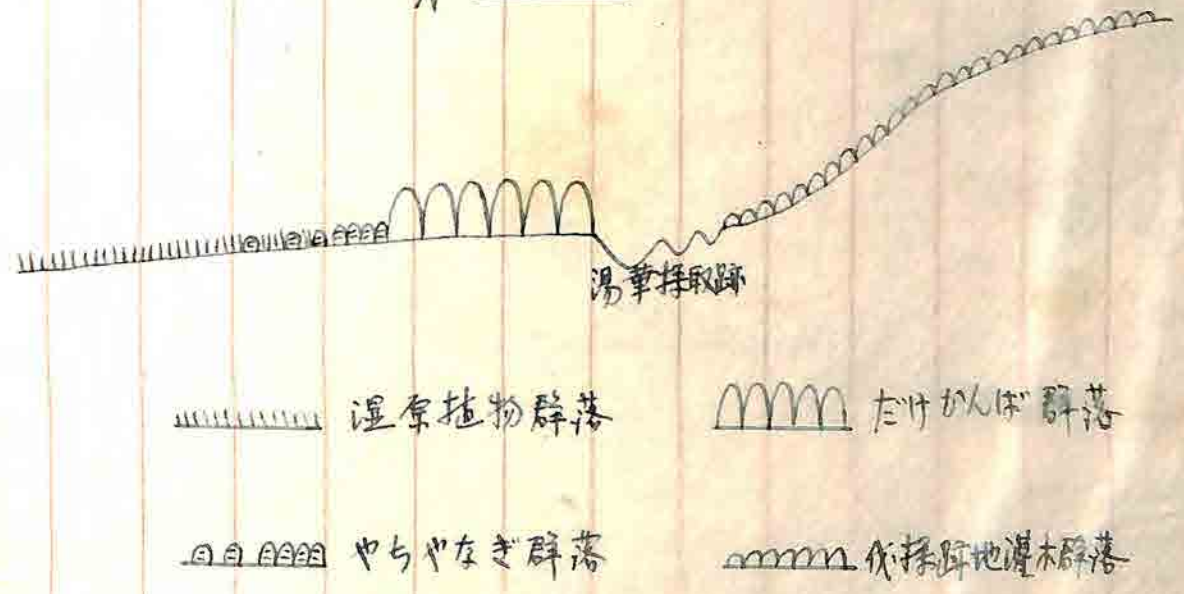 湯華採取跡
湿原植物群落
だけかんば群落
やちやなぎ群落
伐採跡地灌木群落